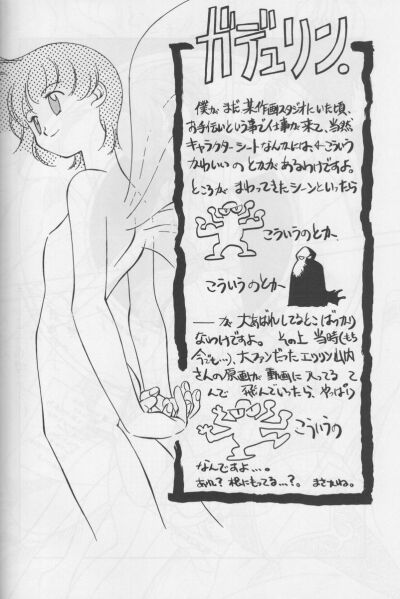 ガデュリン。
僕が まだ 某作画スタジオにいた頃、
お手伝いという事で仕事が来て、当然
キャラクターシートなんかには、←こういう
かわいい のとかが あるわけですよ。
ところが まわってきたシーンといったら
こういうのとか、
こういうのとか
――が 大あばれしてるとこばっかり
ないわけですよ。 その上 当時(もち
今でも…)、大ファンだった エリリン山内
さんの原画が 動画に 入ってる て
んで 飛んでいったら、やっぱり
こういうの
なんですよ…。
あれ? 根にもってる…?。 まさかね。